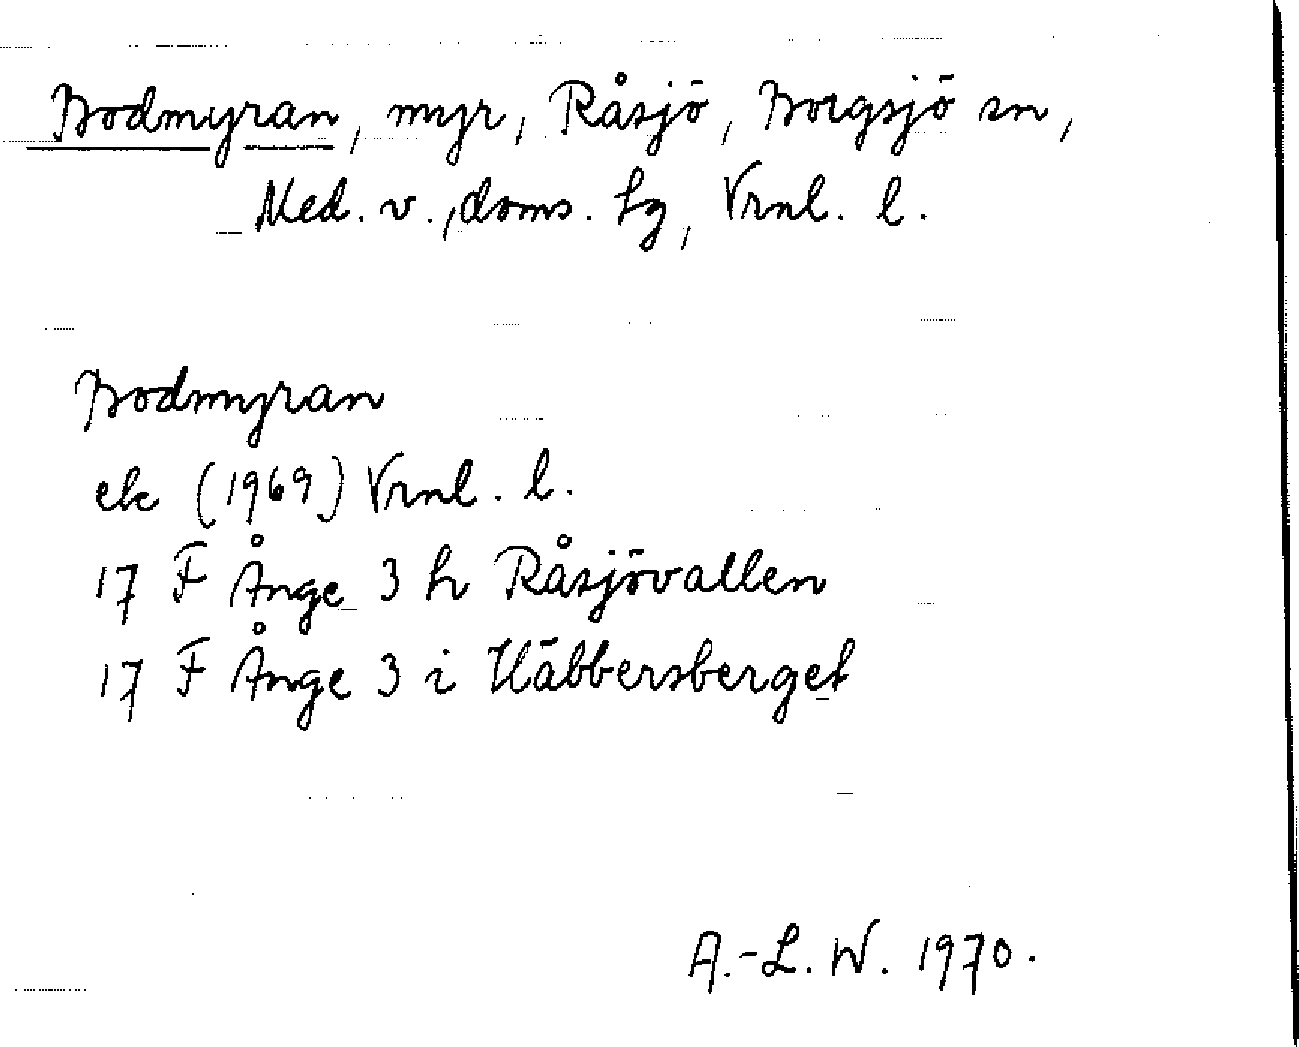 Bodmyran, myr, Råsjö, Borgsjö sn,
Med. v., doms. hg, Vrnl. l.
Bodmyran
ek (1969) Vrnl. l.
17 F Ånge 3 h Råsjövallen
17 F Ånge 3 i Häbbersberget
A.-L. W. 1970.